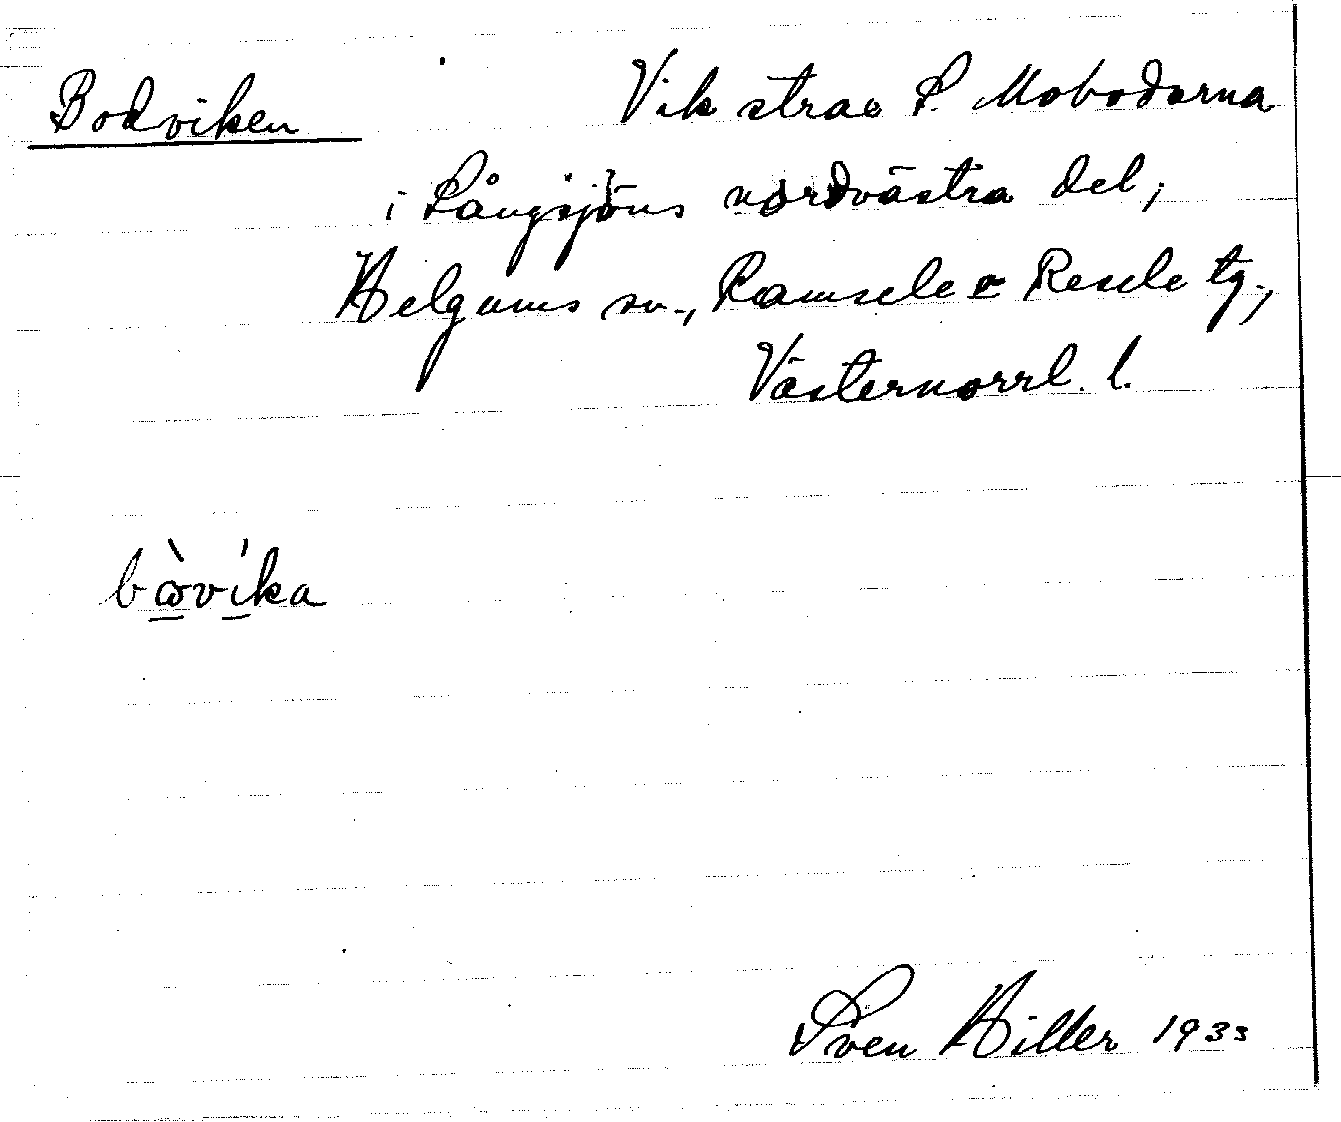 Bodviken Vik strax S. Mobodarna
i Långsjöns nordvästra del,
Helgums sn., Ramsele o Resele tg.,
Västernorrl. l.
bὼvika
Sven Hiller 1933